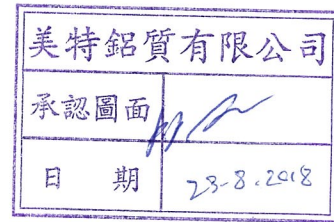 美特鋁質有限公司
承認圖面
日 期 23-8.2018